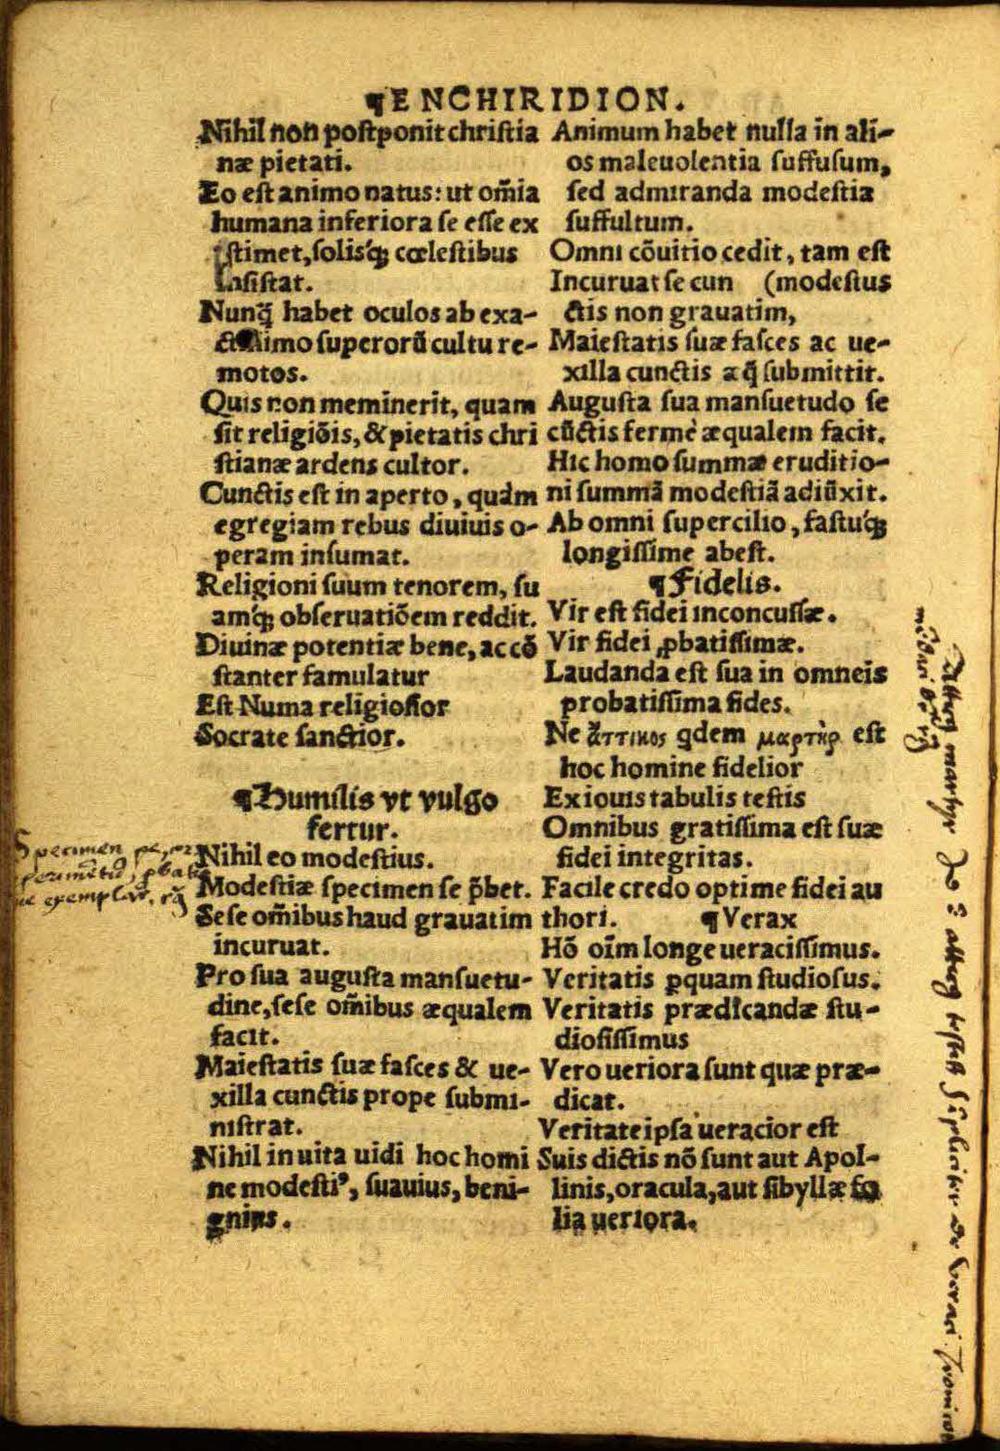 ¶ENCHIRIDION.
Nihil non postponit christia
næ pietati.
Eo est animo natus: ut om̃ia
humana inferiora se esse ex
istimet, solisq́ꝫ cœlestibus
insistat.
Nunq̃ habet oculos ab exa-
ctissimo superorũ cultu re-
motos.
Quis non meminerit, quam
sit religiõis, & pietatis chri
stianæ ardens cultor.
Cunctis est in aperto, quàm
egregiam rebus diuiuis o-
peram insumat.
Religioni suum tenorem, su
amq́ꝫ obseruatiõem reddit.
Diuinæ potentiæ bene, ac cõ
stanter famulatur
Est Numa religiosior
Socrate sanctior.
¶Humilis vt vulgo
fertur.
Nihil eo modestius.
Modestiæ specimen se p̃bet.
Sese om̃ibus haud grauatim
incuruat.
Pro sua augusta mansuetu-
dine, sese om̃ibus æqualem
facit.
Maiestatis suæ fasces & ue-
xilla cunctis prope submi-
nistrat.
Nihil in uita uidi hoc homi
ne modestiꝰ, suauius, beni-
gnius.
Animum habet nulla in ali-
os maleuolentia suffusum,
sed admiranda modestia
suffultum.
Omni cõuitio cedit, tam est
Incuruat se cun (modestus
ctis non grauatim,
Maiestatis suæ fasces ac ue-
xilla cunctis æq̃ submittit.
Augusta sua mansuetudo se
cũctis fermè æqualem facit.
Hic homo summæ eruditio-
ni summã modestiã adiũxit.
Ab omni supercilio, fastuq́ꝫ
longissime abest.
¶Fidelis.
Vir est fidei inconcussæ.
Vir fidei ꝓbatissimæ.
Laudanda est sua in omneis
probatissima fides.
Ne ἄττικος qdem μαρτὴρ est
hoc homine fidelior
Ex iouis tabulis testis
Omnibus gratissima est suæ
fidei integritas.
Facile credo optime fidei au
thori. ¶Verax
Hõ oĩm longe ueracissimus.
Veritatis ꝑquam studiosus.
Veritatis prædicandæ stu-
diosissimus
Vero ueriora sunt quæ præ-
dicat.
Veritate ipsa ueracior est
Suis dictis nõ sunt aut Apol-
linis, oracula, aut sibyllæ fo
lia ueriora.
Specimen